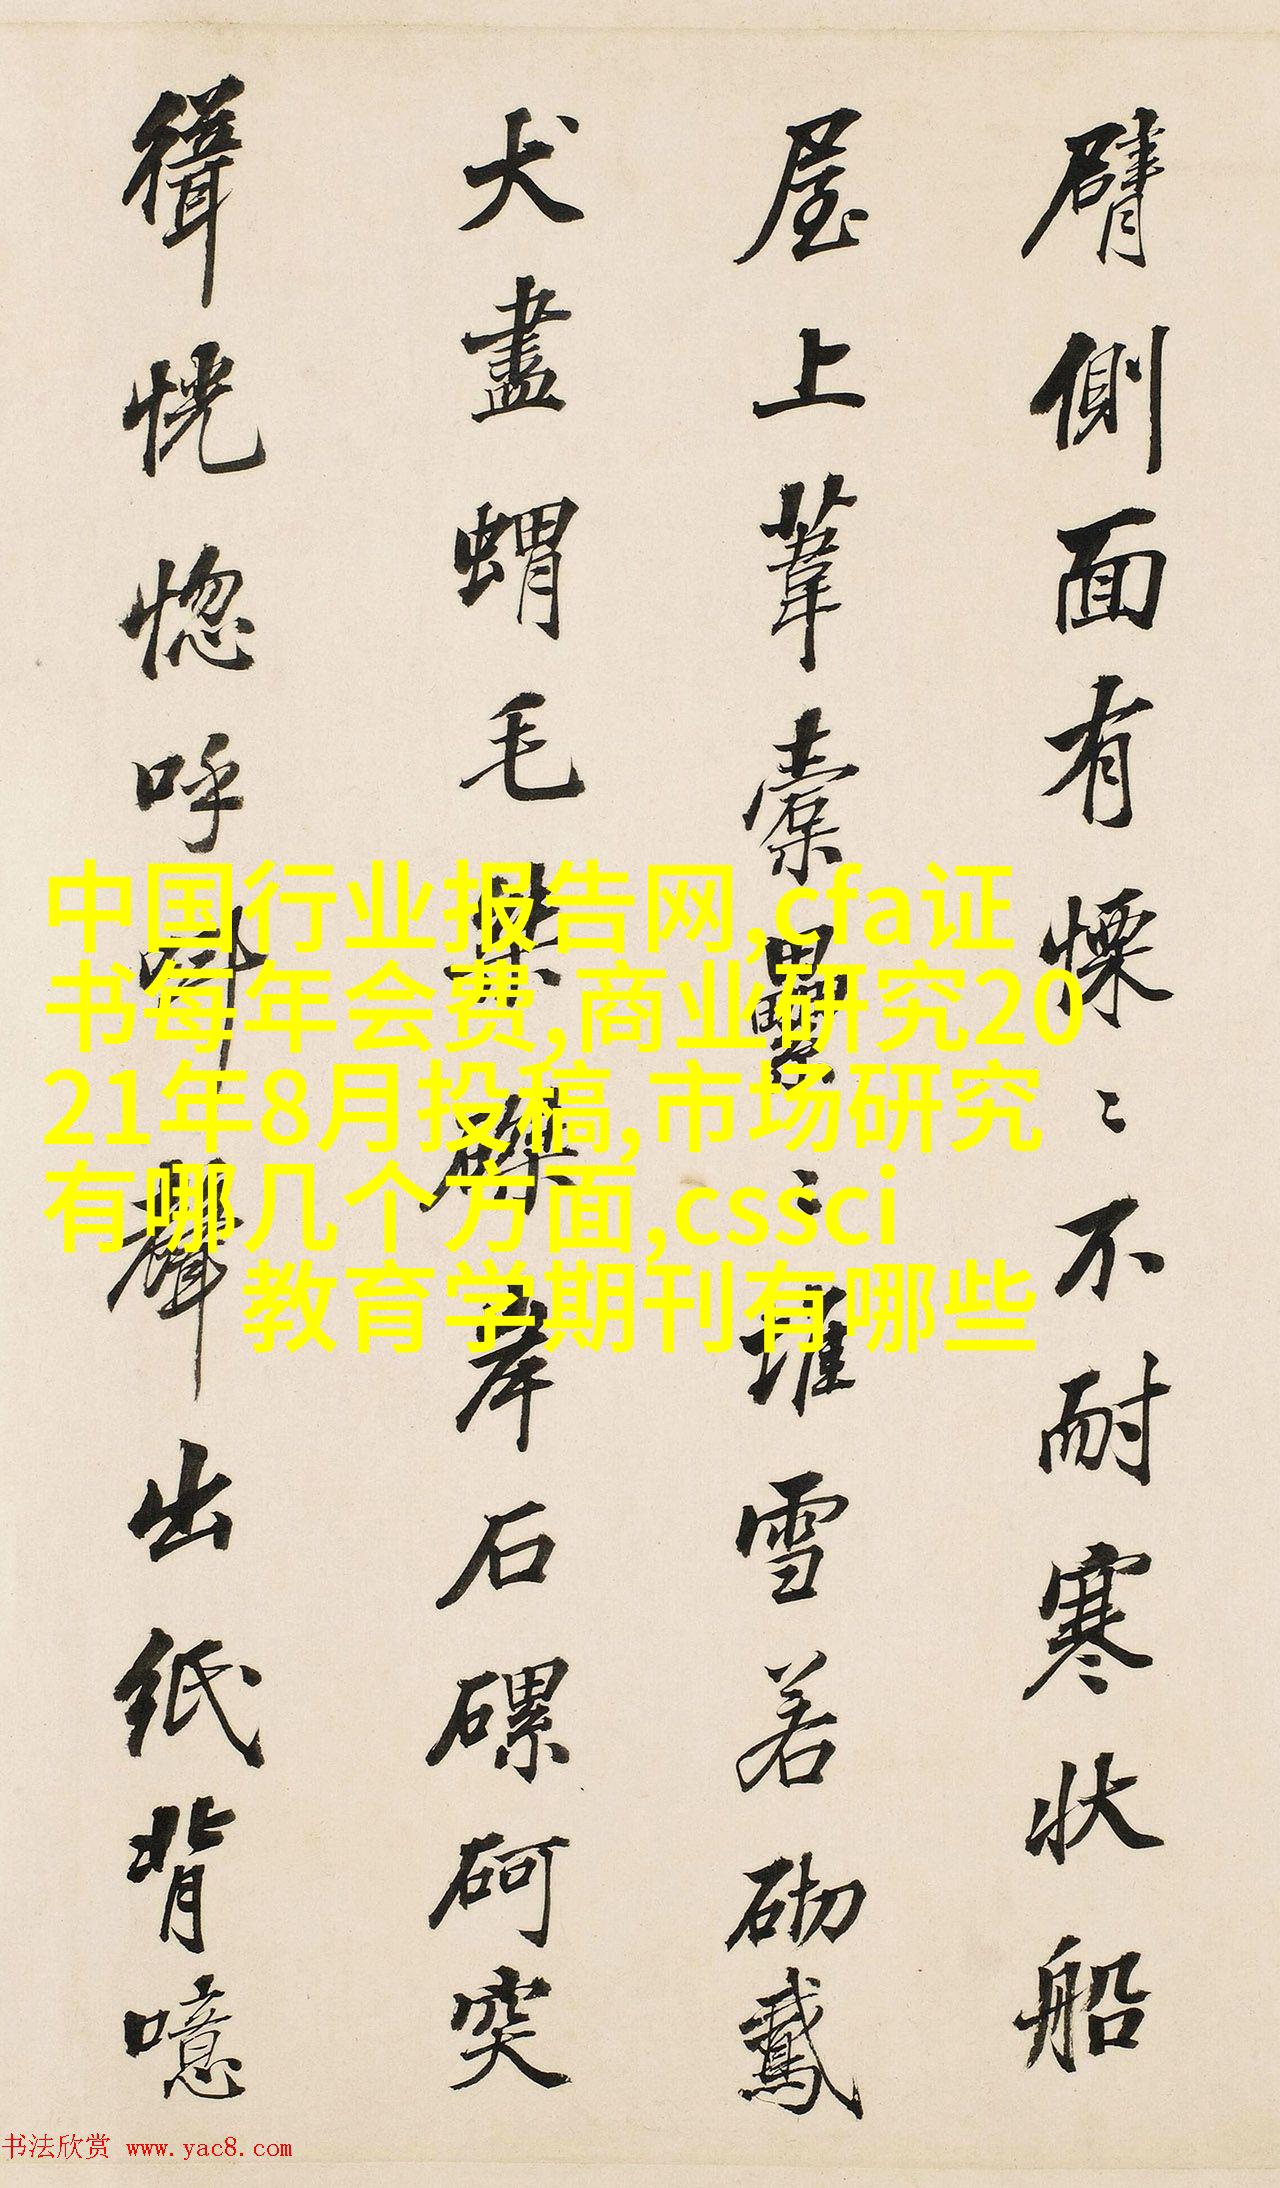 臂側面有慄〻不耐寒状船
屋上葦藁壘〻堆雪若砌鵞
犬盡蝟毛磔石磥砢突
緝恍惚呼聲出紙背噫
中国行业报告网,cfa证
书每年会费,商业研究20
21年8月投稿,市场研究
有哪几个方面,cssci
教育学期刊有哪些
书法欣赏 www.yac8.com